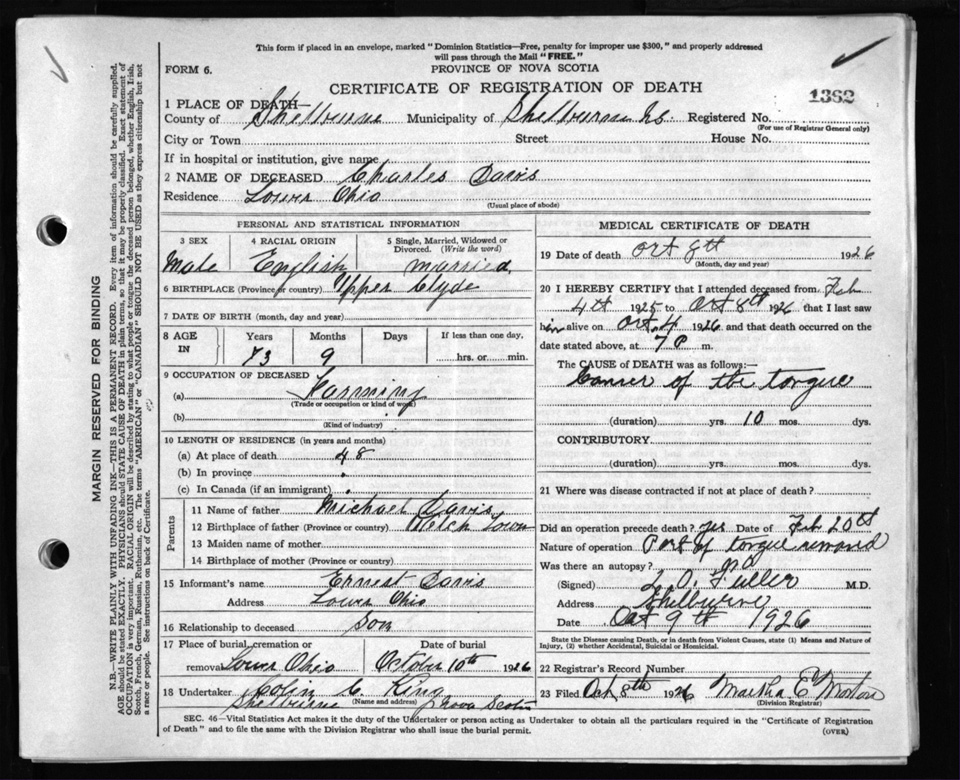 This form if placed in an envelope, marked "Dominion Statistics—Free, penalty for improper use $300," and properly addressed
will pass through the Mail "FREE."
FORM 6.
PROVINCE OF NOVA SCOTIA
CERTIFICATE OF REGISTRATION OF DEATH
1362
1 PLACE OF DEATH—
County of Shelburne Municipality of Shelburne N.S. Registered No.
(For use of Registrar General only)
City or Town Street House No.
If in hospital or institution, give name
2 NAME OF DECEASED Charles Davis
Residence Lower Ohio
(Usual place of abode)
PERSONAL AND STATISTICAL INFORMATION
3 SEX 4 RACIAL ORIGIN 5 Single, Married, Widowed or
Divorced. (Write the word)
Male English married
6 BIRTHPLACE (Province or country) Upper Clyde
7 DATE OF BIRTH (month, day and year)
8 AGE IN Years Months Days If less than one day,
73 9 hrs. or min.
9 OCCUPATION OF DECEASED
(a) Farming
(Trade or occupation or kind of work)
(b)
(Kind of industry)
10 LENGTH OF RESIDENCE (in years and months)
(a) At place of death 48
(b) In province
(c) In Canada (if an immigrant)
Parents
11 Name of father Michael Davis
12 Birthplace of father (Province or country) Welch Town
13 Maiden name of mother
14 Birthplace of mother (Province or Country)
15 Informant's name Ernest Davis
Address Lower Ohio
16 Relationship to deceased Son
17 Place of burial, cremation or Date of burial
removal Lower Ohio October 10th 1926
18 Undertaker Colin C. King
(Name and address)
Shelburne Nova Scotia
MEDICAL CERTIFICATE OF DEATH
19 Date of death Oct 8th 1926
(Month, day and year)
20 I HEREBY CERTIFY that I attended deceased from Feb
4th 1925 to Oct 8th 1926 that I last saw
him alive on Oct 4 1926 and that death occurred on
date stated above, at 7 P m.
The CAUSE of DEATH was as follows:—
Cancer of the tongue
(duration) yrs. 10 mos. dys.
CONTRIBUTORY
(duration) yrs. mos. dys.
21 Where was disease contracted if not at place of death?
Did an operation precede death? yes Date of Feb 20th
Nature of operation Part of tongue removed
Was there an autopsy? no
(Signed) L. O. Fuller M.D.
Address Shelburne
Date Oct 9th 1926
State the Disease causing Death, or in death from Violent Causes, state (1) Means and Nature of
Injury, (2) whether Accidental, Suicidal or Homicidal.
22 Registrar's Record Number
23 Filed Oct 8th 1926 Martha E Morton
(Division Registrar)
SEC. 46—Vital Statistics Act makes it the duty of the Undertaker or person acting as Undertaker to obtain all the particulars required in the "Certificate of Registration
of Death" and to file the same with the Division Registrar who shall issue the burial permit.
(OVER)
MARGIN RESERVED FOR BINDING
N.B.—WRITE PLAINLY WITH UNFADING INK—THIS IS A PERMANENT RECORD. Every item of information should be carefully supplied.
AGE should be stated EXACTLY. PHYSICIANS should STATE CAUSE OF DEATH in plain terms, so that it may be properly classified. Exact statement of
OCCUPATION is very important. RACIAL ORIGIN will be described by stating to what people or tongue the deceased person belonged, whether English, Irish,
Scotch, French, German, Russian, Ruthenian, etc. The terms "AMERICAN" or "CANADIAN" SHOULD NOT BE USED as they express citizenship but not
a race or people. See instructions on back of Certificate.